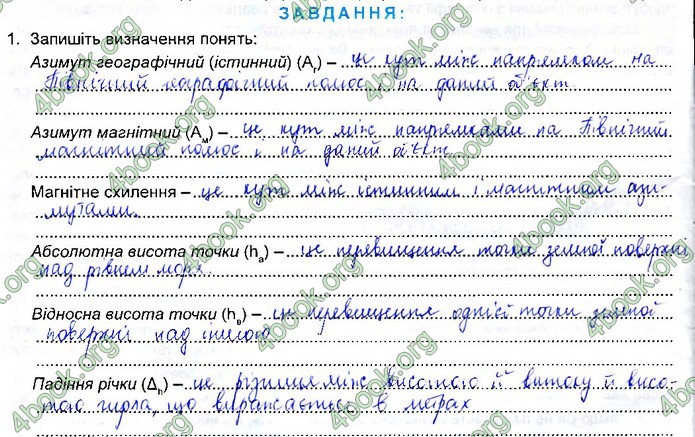 ЗАВДАННЯ:
1. Запишіть визначення понять:
Азимут географічний (істинний) (Аг) – це кут між напрямком на
Північний географічний полюс і на даний об'єкт
Азимут магнітний (Ам) – це кут між напрямками на Північний
магнітний полюс і на даний об'єкт
Магнітне схилення – це кут між істинним і магнітним ази-
мутами.
Абсолютна висота точки (hа) – це перевищення точки земної поверхні
над рівнем моря.
Відносна висота точки (hв) – це перевищення однієї точки земної
поверхні над іншою
Падіння річки (Δh) – це різниця між висотою її витоку й висо-
тою гирла, що виражається в метрах
4book.org